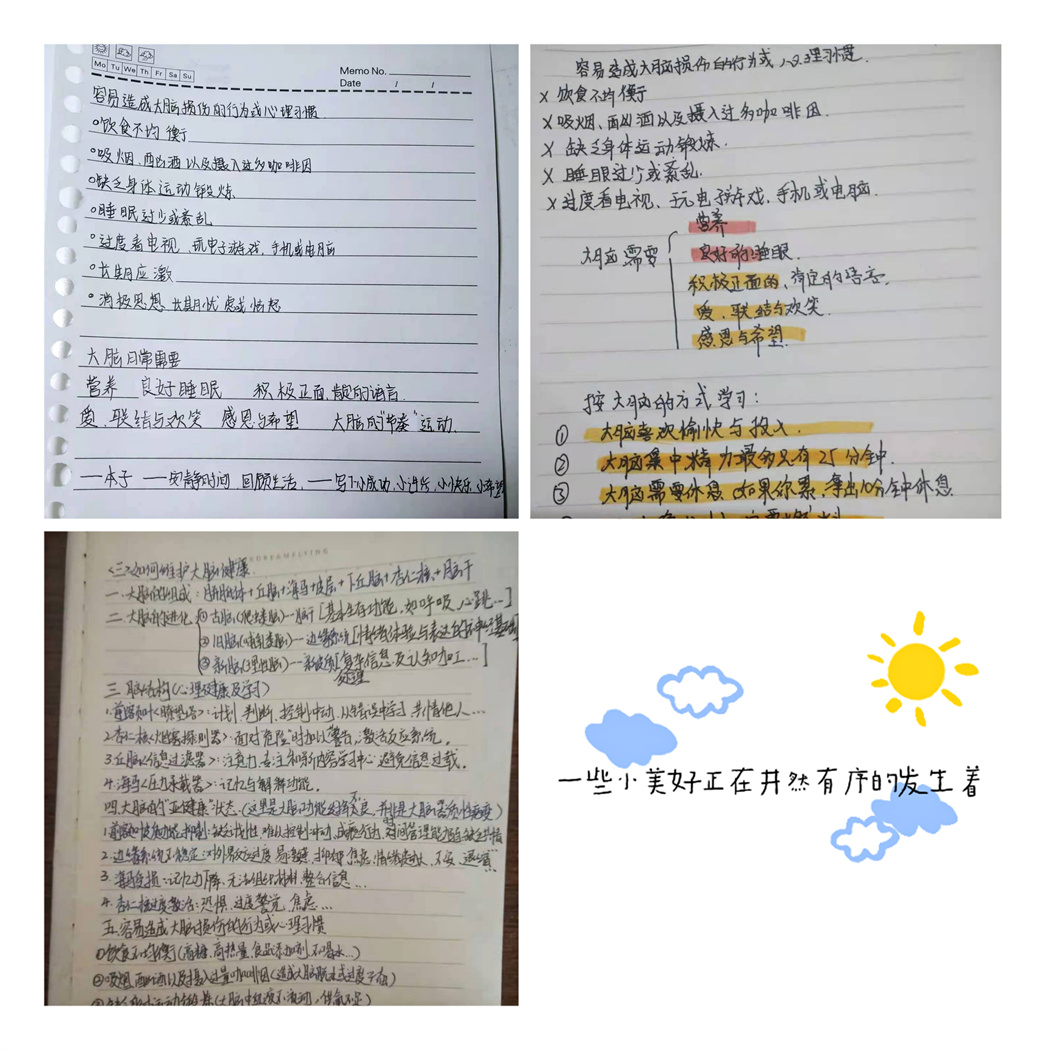 Mo Tu We Th Fr Sa Su
Memo No.
Date / /
容易造成大脑损伤的行为或心理习惯
饮食不均衡
吸烟、酗酒以及摄入过多咖啡因
缺乏身体运动锻炼
睡眠过少或紊乱
过度看电视、玩电子游戏、手机或电脑
长期应激
消极思想 长期忧虑或愤怒
大脑日常需要
营养 良好睡眠 积极正面、肯定的语言
爱、联结与欢笑 感恩与希望 大脑的"节奏"运动
一本子 一安静时间 回顾生活、一写下小成功、小进步、小快乐、小希望
容易造成大脑损伤的行为或心理习惯
X 饮食不均衡
X 吸烟、酗酒以及摄入过多咖啡因.
X 缺乏身体运动锻炼.
X 睡眠过少或紊乱.
X 过度看电视、玩电子游戏、手机或电脑.
大脑需要
营养
良好的睡眠.
积极正面的、肯定的语言.
爱、联结与欢笑.
感恩与希望.
按大脑的方式学习:
① 大脑喜欢愉快与投入.
② 大脑集中精力最多只有25分钟.
③ 大脑需要休息,如果你累,拿出10分钟休息
<三>如何维护大脑健康
一.大脑的组成:胼胝体+丘脑+海马+皮层+下丘脑+杏仁核+脑干
二.大脑的进化 ①古脑(爬虫类脑)—脑干[基本生存功能,如呼吸、心跳…]
②旧脑(哺乳类脑)—边缘系统[情绪体验与表达的神经基础]
③新脑(理性脑)—新皮质[复杂信息处理及认知加工…]
三.脑结构(心理健康及学习)
1.前额叶<瞭望塔>:计划、判断、控制冲动、从错误中学习、共情他人…
2.杏仁核<烟雾探测器>:面对"危险"时加以警告,激活反应系统。
3.丘脑<信息过滤器>:注意力、专注和学习内容学习中心,避免信息过载。
4.海马<压力承载器>:记忆与解释功能。
四.大脑的"亚健康"状态.(这里是大脑功能的不良,并非是大脑器质性病变)
1.前额叶皮质功能抑制:缺乏计划性、难以控制冲动、成瘾行为、时间管理能力差、缺乏共情
2.边缘系统不稳定:对外界反应过度、易激惹、抑郁、焦虑、情绪波动大、不安、退缩
3.海马受损:记忆力下降,无法组织材料、整合信息…
4.杏仁核过度激活:恐惧、过度警觉、焦虑…
五.容易造成大脑损伤的行为或心理习惯
①饮食不均衡(高糖、高热量、食品添加剂、不喝水…)
②吸烟、酗酒以及摄入过量咖啡因
一些小美好正在井然有序的发生着